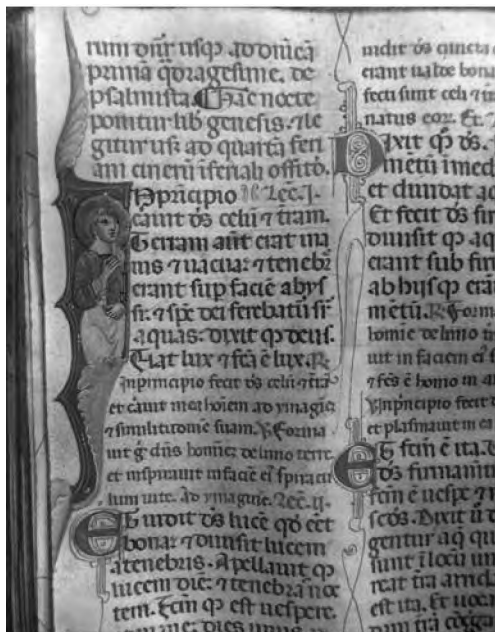 rum dñr usq̨ ad dñicã
primã q̃dragesime. de
psalmista. Hac nocte
ponitur lib̃ genesis. ⁊ le
gitur usq̨ ad quartã feri
am cinerũ i feriali offitio.
IN prĩcipio Lec̃. I.
cauit ds̃ celũ ⁊ terram.
Terram aut̃ erat ina
nis ⁊ uacua: ⁊ tenebr̃
erant sup faciẽ abys
si: ⁊ sp̃s dei ferebatũ sr̃
aquas. dixit q̨ deus.
Fiat lux ⁊ fc̃a ẽ lux. R̃
Inprincipio fecit ds̃ celũ ⁊ trã
et cauit mea hoiem ad ymagĩe
⁊ similitudinẽ suam. Ṽ Forma
uit g̃ dñs hominẽ de limo terre.
et inspirauit in faciẽ ei spiracu
lum uite. Ad ymaginẽ. Lec̃. II.
Et uidit ds̃ lucẽ qd̃ eẽt
bona: ⁊ diuisit lucem
a tenebris. Apellauit q̨
lucem diẽ: ⁊ tenebra noc
tem. Fc̃m q̨ est uespere.
dies unus
uidit ds̃ cuncta
erant ualde bona
fecti sunt celi ⁊
natus eoꝝ. Et
Dixit q̨ ds̃.
mẽtũ i med
et diuidat aq
Et fecit ds̃ fir
diuisit q̨ aq
erant sub fir
ab hiis q̨ erã
mẽtũ. R̃ Forma
homiẽ de limo
uit in faciem ei
⁊ fc̃s ẽ homo in
Ṽ Inprĩcipio fecit
et plasmauit
Et fc̃m ẽ ita.
ds̃ firmamẽt
fc̃m ẽ uespe ⁊
scd̃s. Dixit ũ d
gentur aq̃ qu
sunt ĩ locũ un
reat trã arid
est ita. Et uoca
trã cõgg